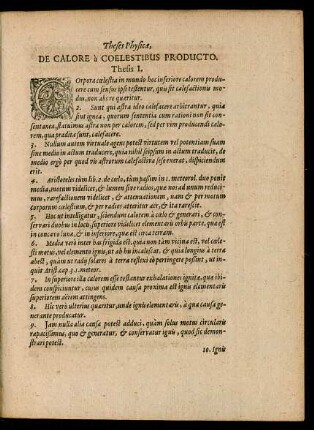 Theses Physicæ,
DE CALORE à COELESTIBUS PRODUCTO.
Thesis I.
Corpora cælestia in mundo hoc inferiore calorem produ-
cere cum sensus ipsi testentur, quis sit calefactionis mo-
dus, non ab re quæritur.
2. Sunt qui astra ideo calefacere arbitrantur, quia
sint ignea, quorum sententia cum rationi non sit con-
sentanea, statuimus astra non per calorem, sed per vim producendi calo-
rem, qua prædita sunt, calefacere.
3. Nullum autem virtuale agens potest virtutem vel potentiam suam
sine medio in actum producere, quia nihil seipsum in actum producit, de
medio ergo per quod vis astrorum calefactiva sese exerat, dispiciendum
erit.
4. Aristoteles tum lib. 2. de cælo, tùm passim in 1. meteorol. duo ponit
media, motum videlicet, & lumen sive radios, quæ non ad unum reduci-
mus, rarefactionem videlicet, & attenuationem, nam & per motum
corporum cœlestium, & per radios atteritur aër, & ita rarescit.
5. Hoc ut intelligatur, sciendum calorem à cœlo & generari, & con-
servari duobus in locis, superiore videlicet elementaris orbis parte, quæ est
in concavo lunæ, & in inferiore, quæ est circa terram.
6. Media verò inter has frigida est, quia non tàm vicina est, vel cœle-
sti motui, vel elemento ignis, ut ab his incalescat, & quia longius à terra
abest, quàm ut radij solares à terra reflexi eò pertingere possint, ut in-
quit Arist. cap. 3. 1. meteor.
7. In superiore ista calorem esse testantur exhalationes ignitæ, quæ ibi-
dem conspiciuntur, cujus quidem causa proxima est ignis elementaris
superiorem aërem attingens.
8. Hic verò ulterius quæritur, unde ignis elementaris, & à qua causa ge-
nerante producatur.
9. Jam nulla alia causa potest adduci, quàm solus motus circularis
rapacissimus, quo & generatur, & conservatur ignis, quod sic demon-
strari potest.
10. Ignis